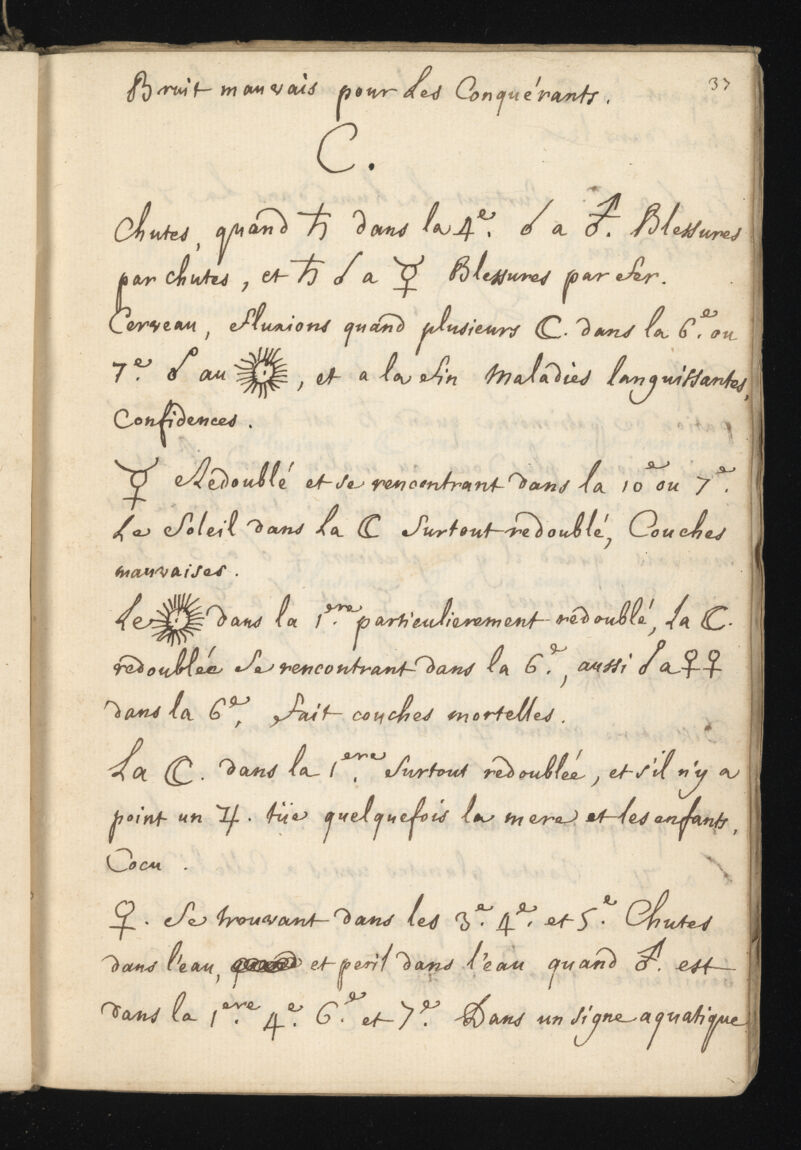 37
Bruit mauvais pour Les Conquérants.
C.
Chutes, quand ♄ dans la 4.e ☌ a ♂. Blessures
par chutes, et ♄ ☌ a ☿ Blessures par fer.
Cerveau, fluxions quand plusieurs ☾. dans la 6.e ou
7.e ☌ au ☉, et a la fin Maladies languissantes,
Confidences.
☿ Redoublé et se rencontrant dans la 10.e ou 7.e
Le Soleil dans la ☾ Surtout redoublé, Couches
mauvaises.
Le ☉ dans la 1.ere particulierement redoublé, La ☾.
redoublée Se rencontrant dans la 6.e, aussi ☌ a ♀♀
dans la 6.e, fait couches mortelles.
La ☾. dans la 1.ere Surtout redoublée, et s'il n'y a
point un ♃. tüe quelquefois la mere et les enfants,
Cocu.
♀. Se trouvant dans les 3.e 4.e et 5.e Chutes
dans l'eau, et peril dans l'eau quand ♂. est
dans la 1.ere 4.e 6.e et 7.e Dans un signe aquatique